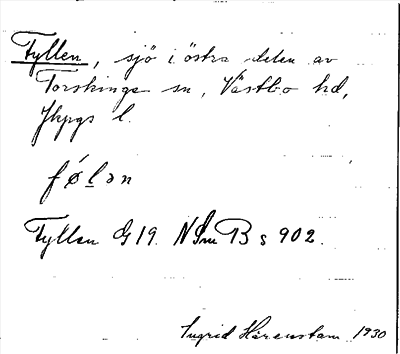 Fyllen, sjö i östra delen av
Torskinge sn, Västbo hd,
Jkpgs l.
fǿl̲ən
Fyllen G 19. NSmB s 902.
Ingrid Härenstam 1930